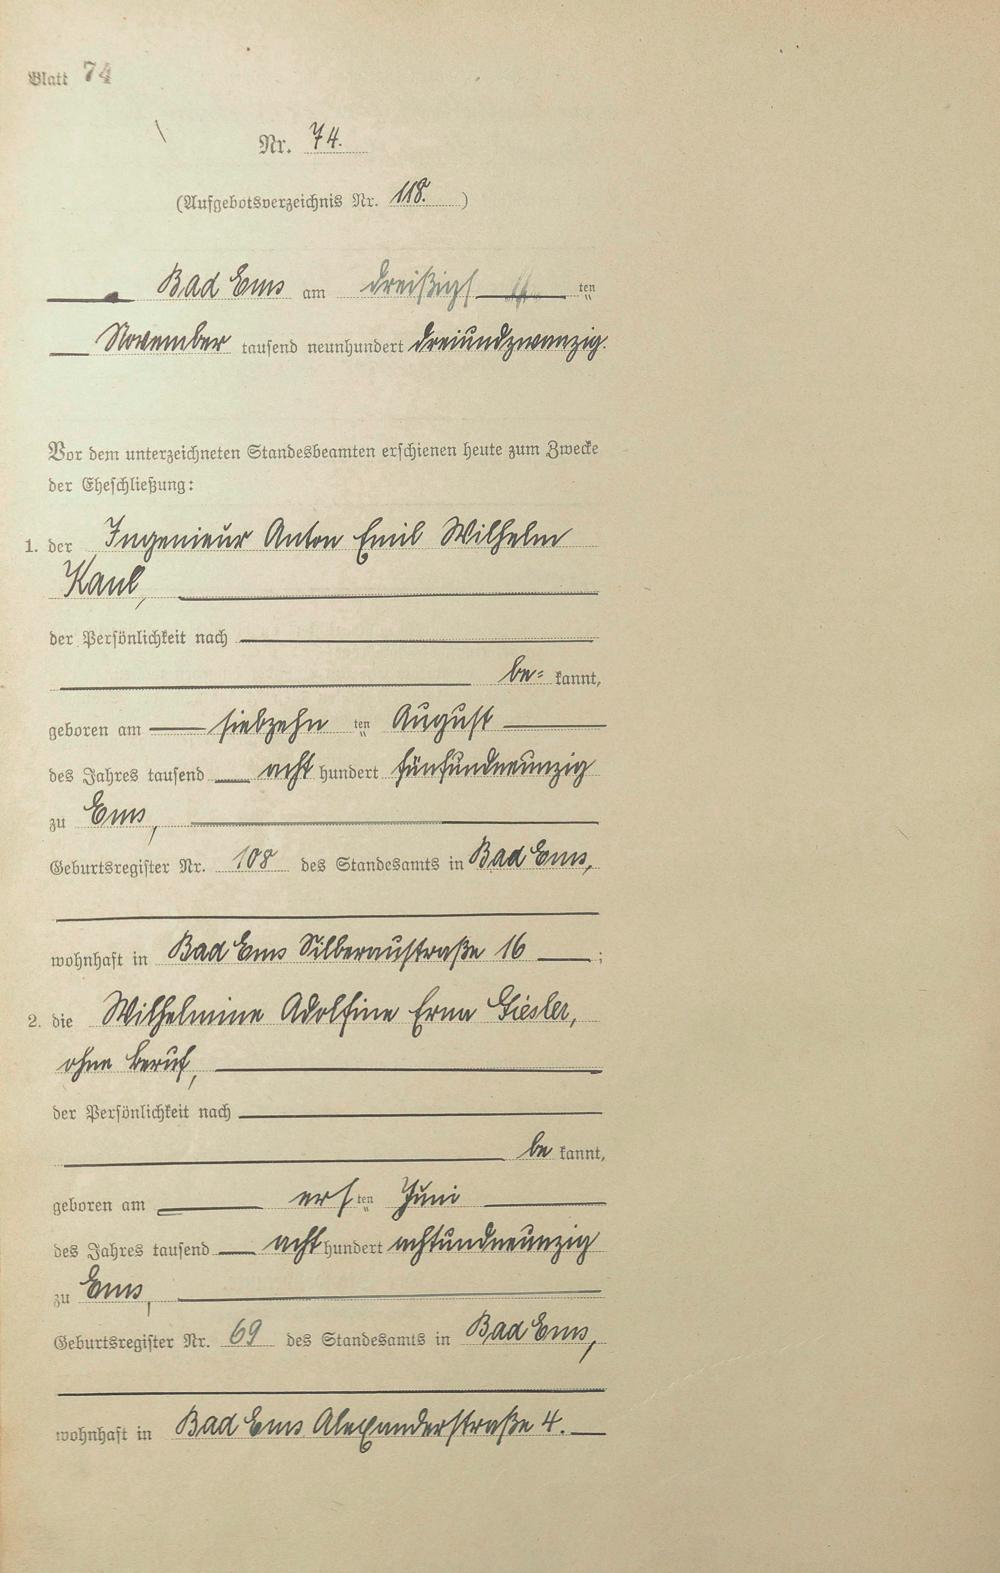 Blatt 74
Nr. 74.
(Aufgebotsverzeichnis Nr. 118.)
Bad Ems am dreißigs ten
November tausend neunhundert dreiundzwanzig.
Vor dem unterzeichneten Standesbeamten erschienen heute zum Zwecke
der Eheschließung:
1. der Ingenieur Anton Emil Wilhelm
Kaul,
der Persönlichkeit nach
be= kannt,
geboren am siebzehn ten August
des Jahres tausend acht hundert fünfundneunzig
zu Ems,
Geburtsregister Nr. 108 des Standesamts in Bad Ems,
wohnhaft in Bad Ems Silberaustraße 16 ;
2. die Wilhelmine Adolfine Erna Giesler,
ohne Beruf,
der Persönlichkeit nach
be kannt,
geboren am ers ten Juni
des Jahres tausend acht hundert achtundneunzig
zu Ems,
Geburtsregister Nr. 69 des Standesamts in Bad Ems,
wohnhaft in Bad Ems Alexanderstraße 4.